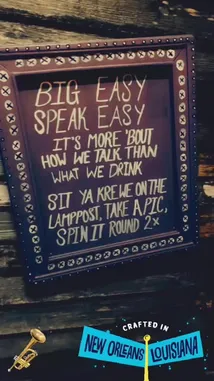 BIG EASY
SPEAK EASY
IT'S MORE 'BOUT
HOW WE TALK THAN
WHAT WE DRINK
SIT YA KREWE ON THE
LAMPPOST, TAKE A PIC,
SPIN IT ROUND 2X
CRAFTED IN
NEW ORLEANS LOUISIANA